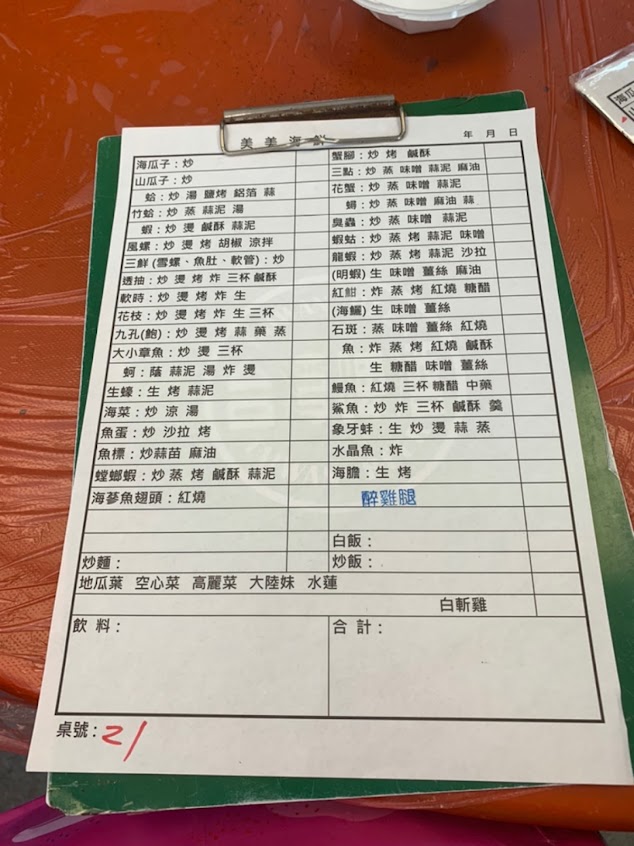 美美海鮮
年 月 日
海瓜子：炒
山瓜子：炒
蛤：炒 湯 鹽烤 鋁箔 蒜
竹蛤：炒 蒸 蒜泥 湯
蝦：炒 燙 鹹酥 蒜泥
風螺：炒 燙 烤 胡椒 涼拌
三鮮(雪螺、魚肚、軟管)：炒
透抽：炒 燙 烤 炸 三杯 鹹酥
軟時：炒 燙 烤 炸 生
花枝：炒 燙 烤 炸 生 三杯
九孔(鮑)：炒 燙 烤 蒜 藥 蒸
大小章魚：炒 燙 三杯
蚵：蔭 蒜泥 湯 炸 燙
生蠔：生 烤 蒜泥
海菜：炒 涼 湯
魚蛋：炒 沙拉 烤
魚標：炒蒜苗 麻油
螳螂蝦：炒 蒸 烤 鹹酥 蒜泥
海蔘魚翅頭：紅燒
炒麵：
蟹腳：炒 烤 鹹酥
三點：炒 蒸 味噌 蒜泥 麻油
花蟹：炒 蒸 味噌 蒜泥
蟳：炒 蒸 味噌 麻油 蒜
臭蟲：炒 蒸 味噌 蒜泥
蝦蛄：炒 蒸 烤 蒜泥 味噌
龍蝦：炒 蒸 烤 蒜泥 沙拉
(明蝦) 生 味噌 薑絲 麻油
紅魽：炸 蒸 烤 紅燒 糖醋
(海鱺) 生 味噌 薑絲
石斑：蒸 味噌 薑絲 紅燒
魚：炸 蒸 烤 紅燒 鹹酥
生 糖醋 味噌 薑絲
鰻魚：紅燒 三杯 糖醋 中藥
鯊魚：炒 炸 三杯 鹹酥 羹
象牙蚌：生 炒 燙 蒜 蒸
水晶魚：炸
海膽：生 烤
醉雞腿
白飯：
炒飯：
地瓜葉 空心菜 高麗菜 大陸妹 水蓮
白斬雞
飲料：
合計：
桌號：21
海瓜